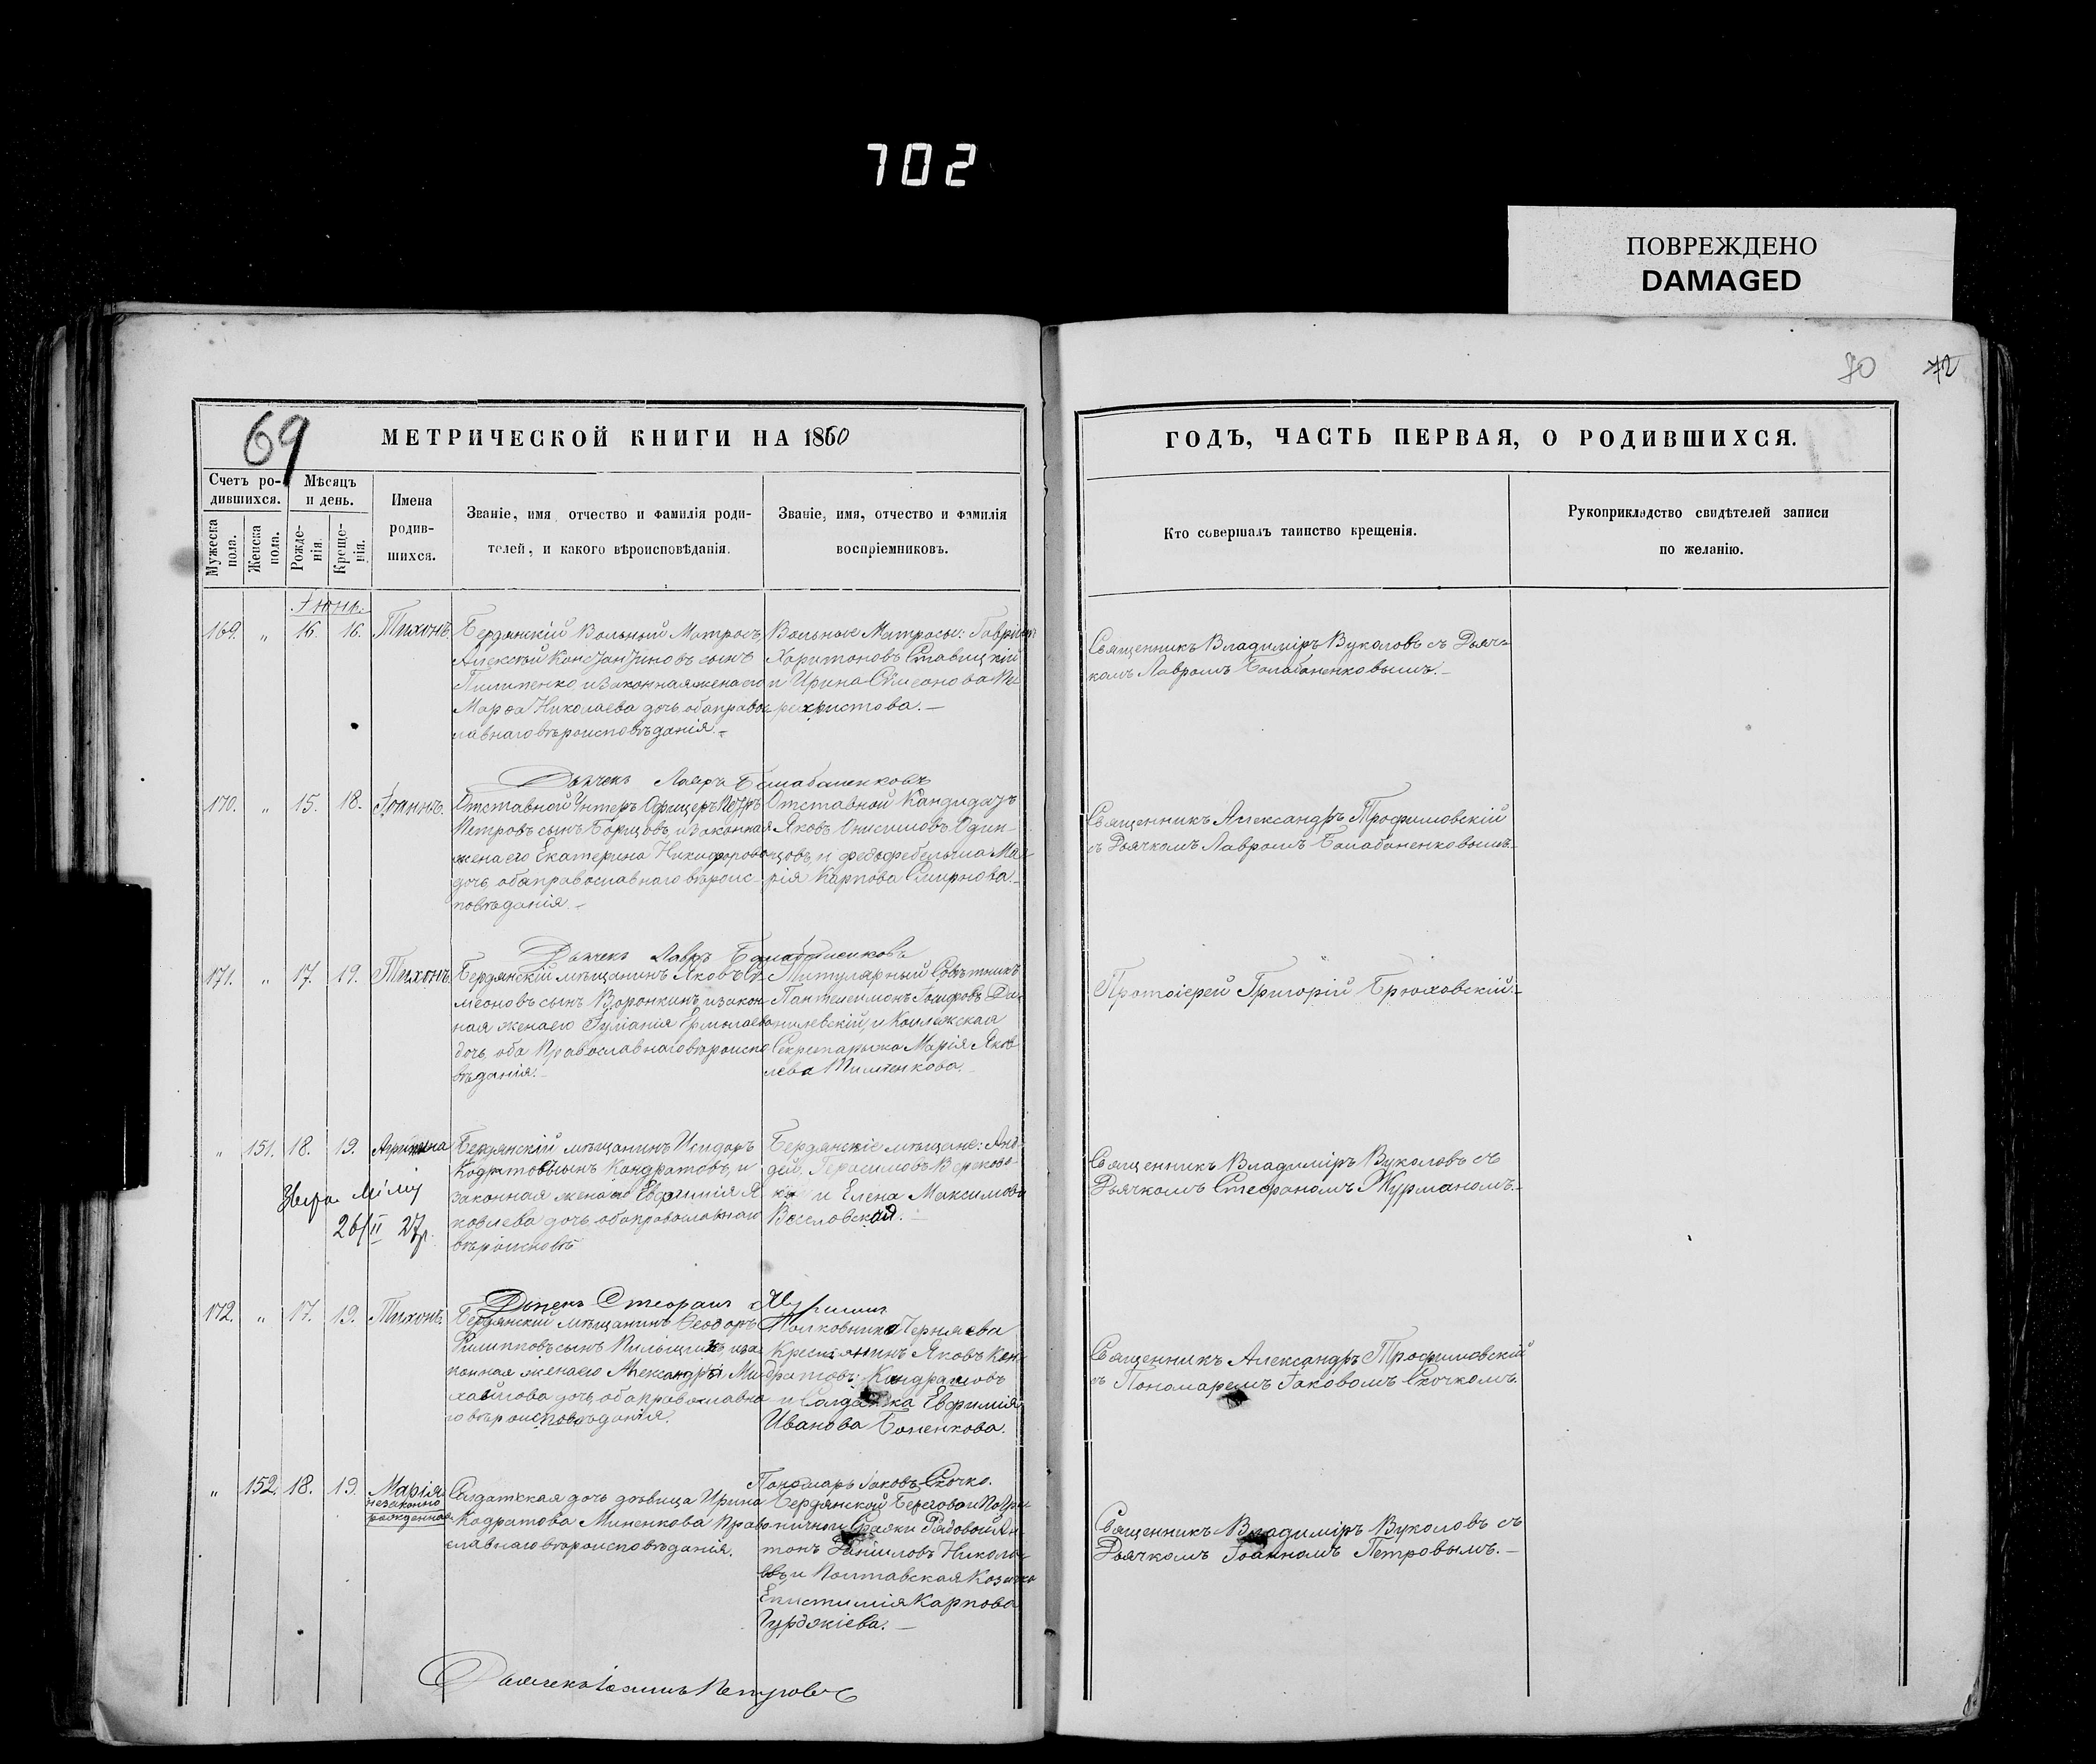 702
ПОВРЕЖДЕНО
DAMAGED
70
72
69
МЕТРИЧЕСКОЙ КНИГИ НА 1860
ГОДЪ, ЧАСТЬ ПЕРВАЯ, О РОДИВШИХСЯ.
Счетъ ро-
дившихся.
Мѣсяцъ
и день.
Мужеска
пола.
Женска
пола.
Рожде-
нія.
Креще-
нія.
Имена
родив-
шихся.
Званіе, имя отчество и фамилія роди-
телей, и какого вѣроисповѣданія.
Званіе, имя, отчество и фамилія
воспріемниковъ.
Кто совершалъ таинство крещенія.
Рукоприкладство свидѣтелей записи
по желанію.
Іюнь.
169. „ 16. 16. Тихонъ.
Бердянскій Вольный Матросъ
Алексѣй Константиновъ сынъ
Пилипенко и законная жена его
Марѳа Николаева дочь, оба православ
лавнаго вѣроисповѣданія.
Вольные Матросы: Гавріилъ
Харитоновъ Ставицкій
и Ирина Симеонова Пе
рехристова.
Священникъ Владиміръ Вуколовъ съ Дьяч-
комъ Лавромъ Балабаненковымъ.
Дьячекъ Лавръ Балабаненковъ
170. „ 15. 18. Іоаннъ.
Отставной Унтеръ Офицеръ Петръ
Петровъ сынъ Борщовъ, и законная
жена его Екатерина Никифорова
дочь, оба православнаго вѣроис-
повѣданія.
Отставной Кандидатъ
Яковъ Онисимовъ Один-
цовъ, и фельдфебельша Ма-
рія Карпова Смирнова.
Священникъ Александръ Трофимовскій
съ Дьячкомъ Лавромъ Балабаненковымъ.
Дьячекъ Лавръ Балабаненковъ
171. „ 17. 19. Тихонъ.
Бердянскій мѣщанинъ Яковъ Си-
меоновъ сынъ Воронкинъ, и закон-
ная жена его Іуліанія Ермолаева
дочь, оба Православнаго вѣроиспо
вѣданія.
Титулярный Совѣтникъ
Пантелеимонъ Іосифовъ Да-
нилевскій, и Коллежская
Секретарша Марія Яков
лева Пиленкова.
Протоіерей Григорій Брюховскій.
„ 151. 18. 19.
Бердянскій мѣщанинъ Исидоръ
Кодратовъ сынъ Кондратовъ, и
законная жена его Евфимія Я
ковлева дочь, оба православнаго
вѣроисповѣ
Бердянскіе мѣщане: Анд-
рей Герасимовъ
и Елена Максимова
Веселовская.
26/II 27р.
Священникъ Владиміръ Вуколовъ съ
Дьячкомъ Стефаномъ Журманомъ.
Дьячекъ Стефанъ Журманъ
172. „ 17. 19. Тихонъ.
Бердянскій мѣщанинъ Ѳеодоръ
Филипповъ сынъ и за
конная жена его Александра Ми
хайлова дочь, оба православна
го вѣроисповѣданія.
Полковника Черняева
Крестьянинъ Яковъ Кон
дратовъ Кондратовъ
и Солдатка Евфимія
Иванова Боненкова.
Священникъ Александръ Трофимовскій
съ Пономаремъ Іаковомъ Скочкомъ.
Пономарь Іаковъ Скочко.
„ 152. 18. 19. Марія
незаконно
рожденная
Солдатская дочь дѣвица Ирина
Кодратова Миненкова Право
славнаго вѣроисповѣданія.
Бердянской Береговой Погра
ничной Стражи Рядовой Ан-
тонъ Даниловъ Никола-
евъ и Полтавская Козачка
Епистимія Карпова
Гурджіева.
Священникъ Владиміръ Вуколовъ съ
Дьячкомъ Іоанномъ Петровымъ.
Дьячекъ Іоаннъ Петровъ